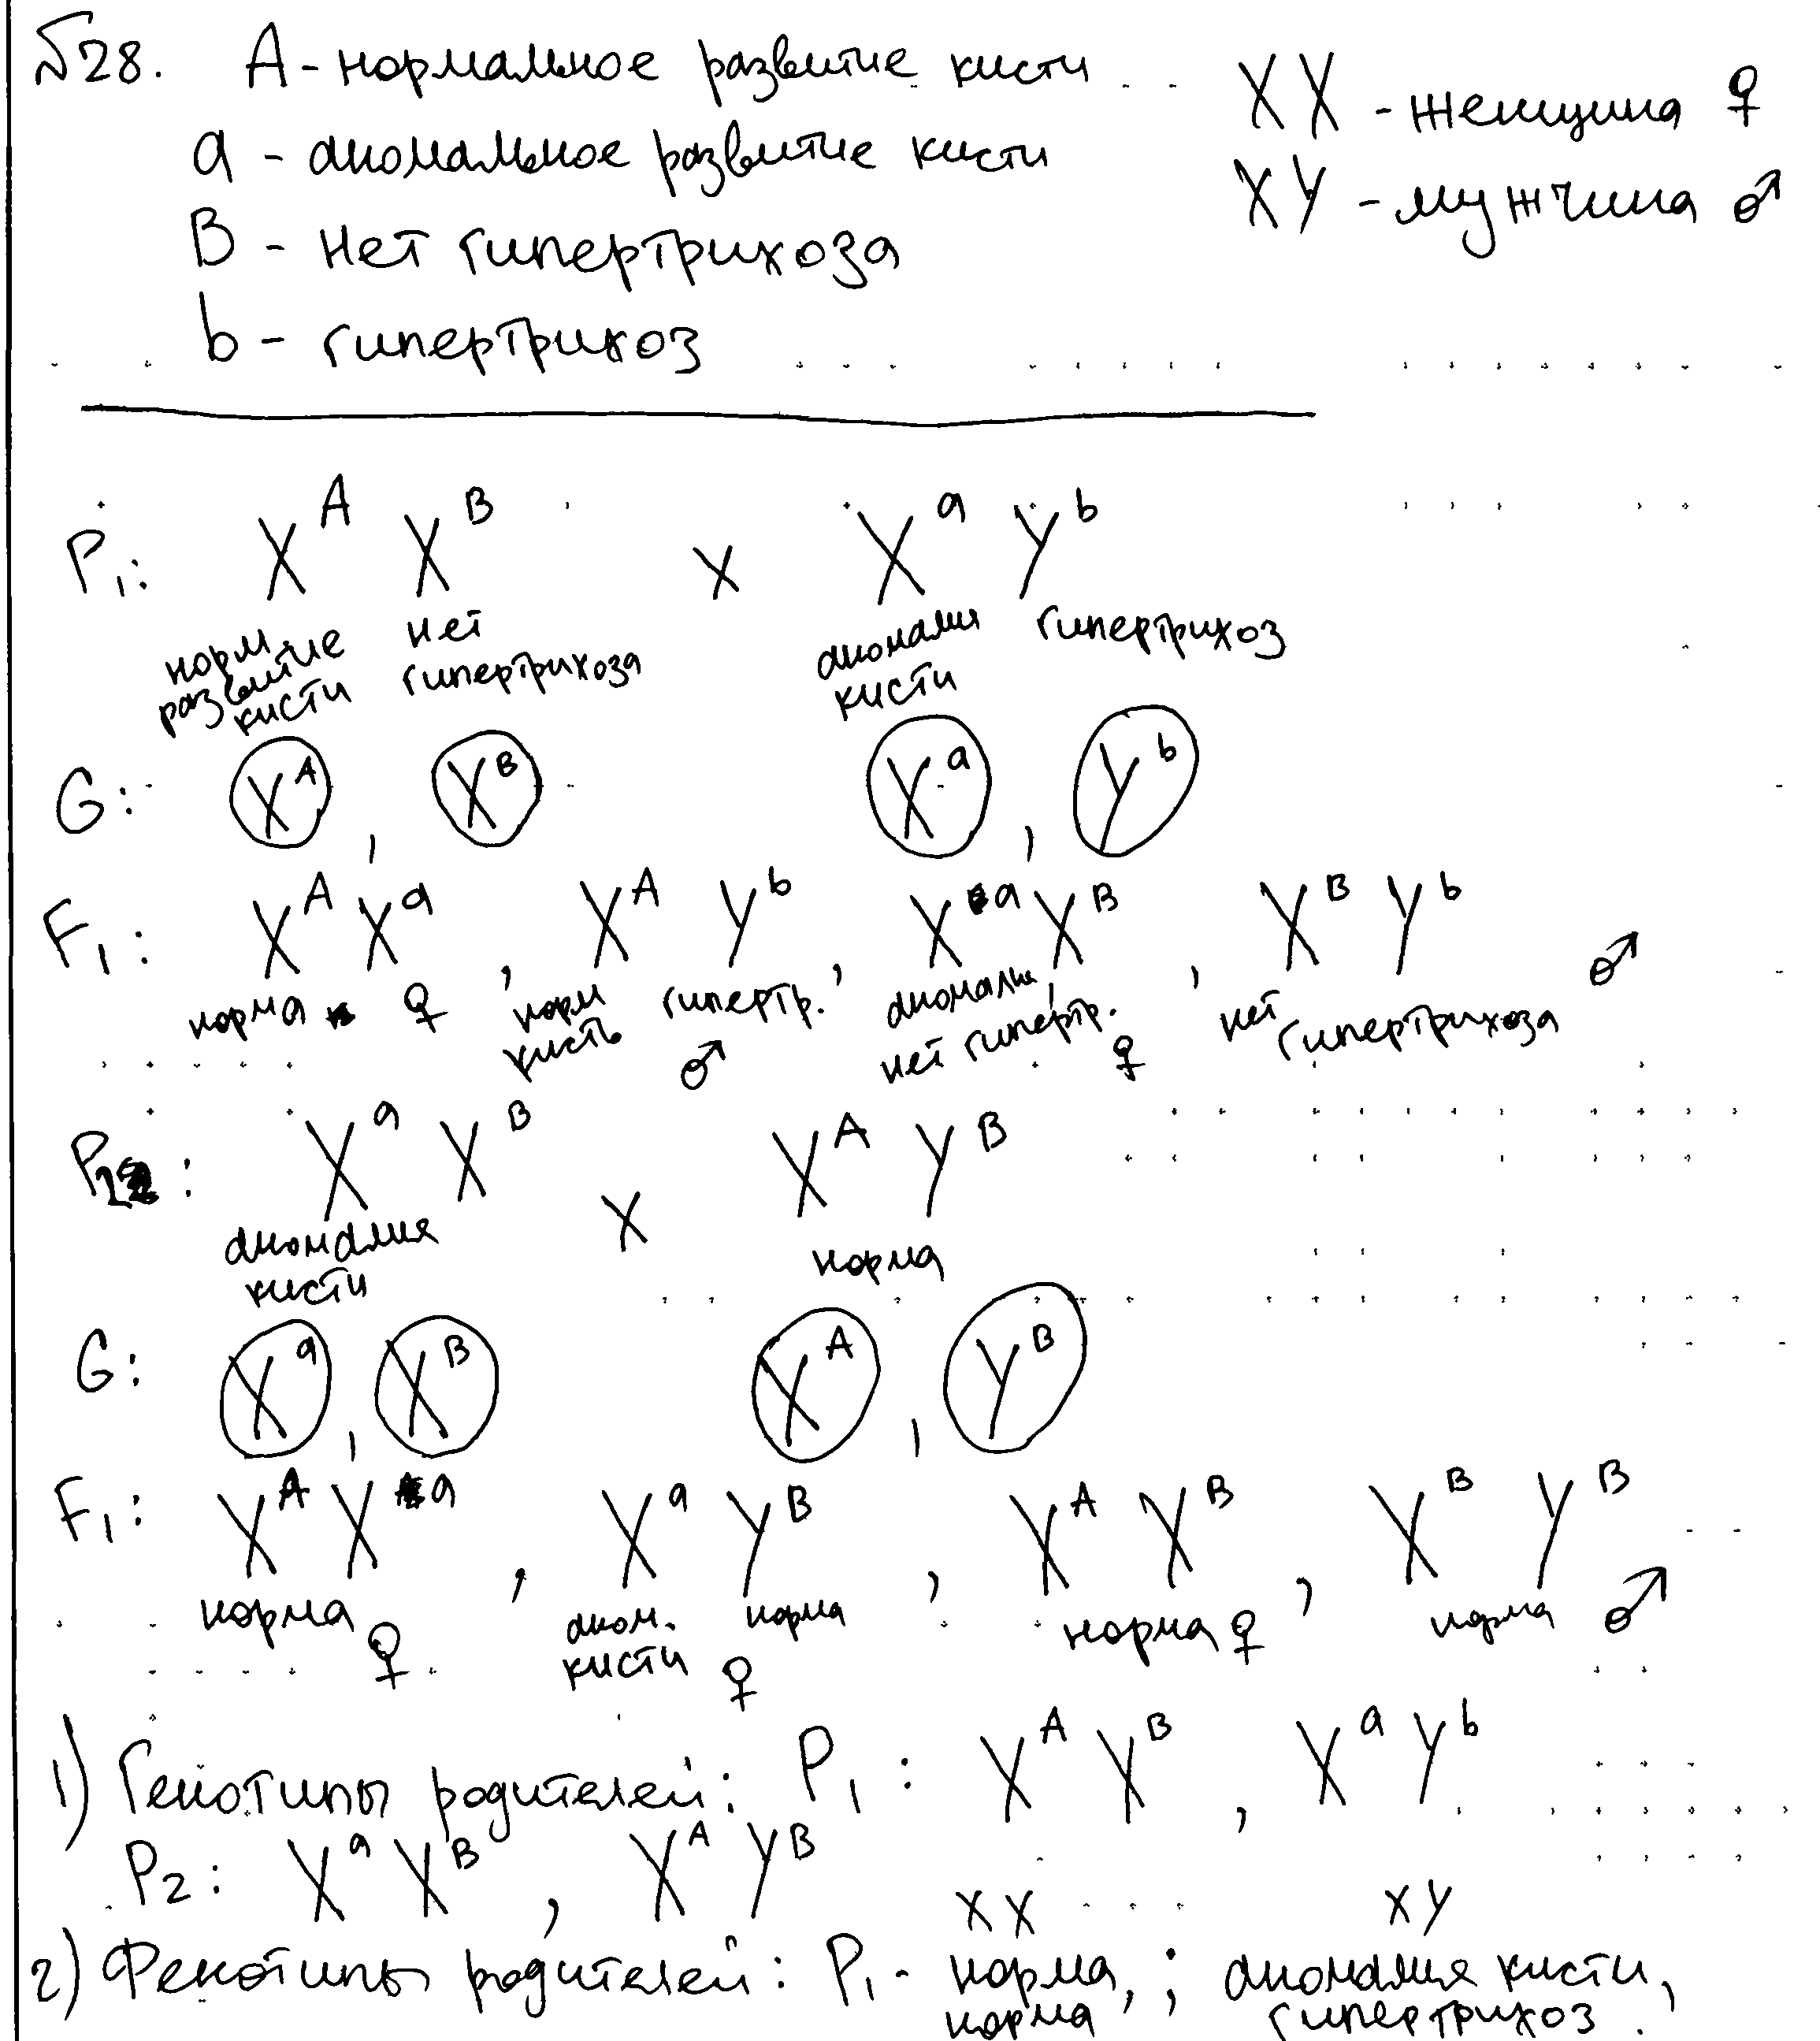 №28. А - нормальное развитие кисти XX - женщина ♀
а - аномальное развитие кисти XY - мужчина ♂
В - нет гипертрихоза
b - гипертрихоз
P₁: Xᴬ Xᴮ x Xᵃ Yᵇ
норм развитие кисти нет гипертрихоза аномалия кисти гипертрихоз
G: Xᴬ , Xᴮ Xᵃ , Yᵇ
F₁: Xᴬ Xᵃ , Xᴬ Yᵇ , Xᵃ Xᴮ , Xᴮ Yᵇ ♂
норма ♀ норм кисть гипертр. ♂ аномалия, нет гипертр. ♀ нет гипертрихоза
P₂: Xᵃ Xᴮ x Xᴬ Yᴮ
аномалия кисти норма
G: Xᵃ , Xᴮ Xᴬ , Yᴮ
F₁: Xᴬ Xᵃ , Xᵃ Yᴮ , Xᴬ Xᴮ , Xᴮ Yᴮ
норма ♀ аном. кисти норма ♀ норма ♀ норма ♂
1) Генотипы родителей: P₁: Xᴬ Xᴮ , Xᵃ Yᵇ
P₂: Xᵃ Xᴮ , Xᴬ Yᴮ
XX XY
2) Фенотипы родителей: P₁ - норма, ; аномалия кисти,
норма гипертрихоз.